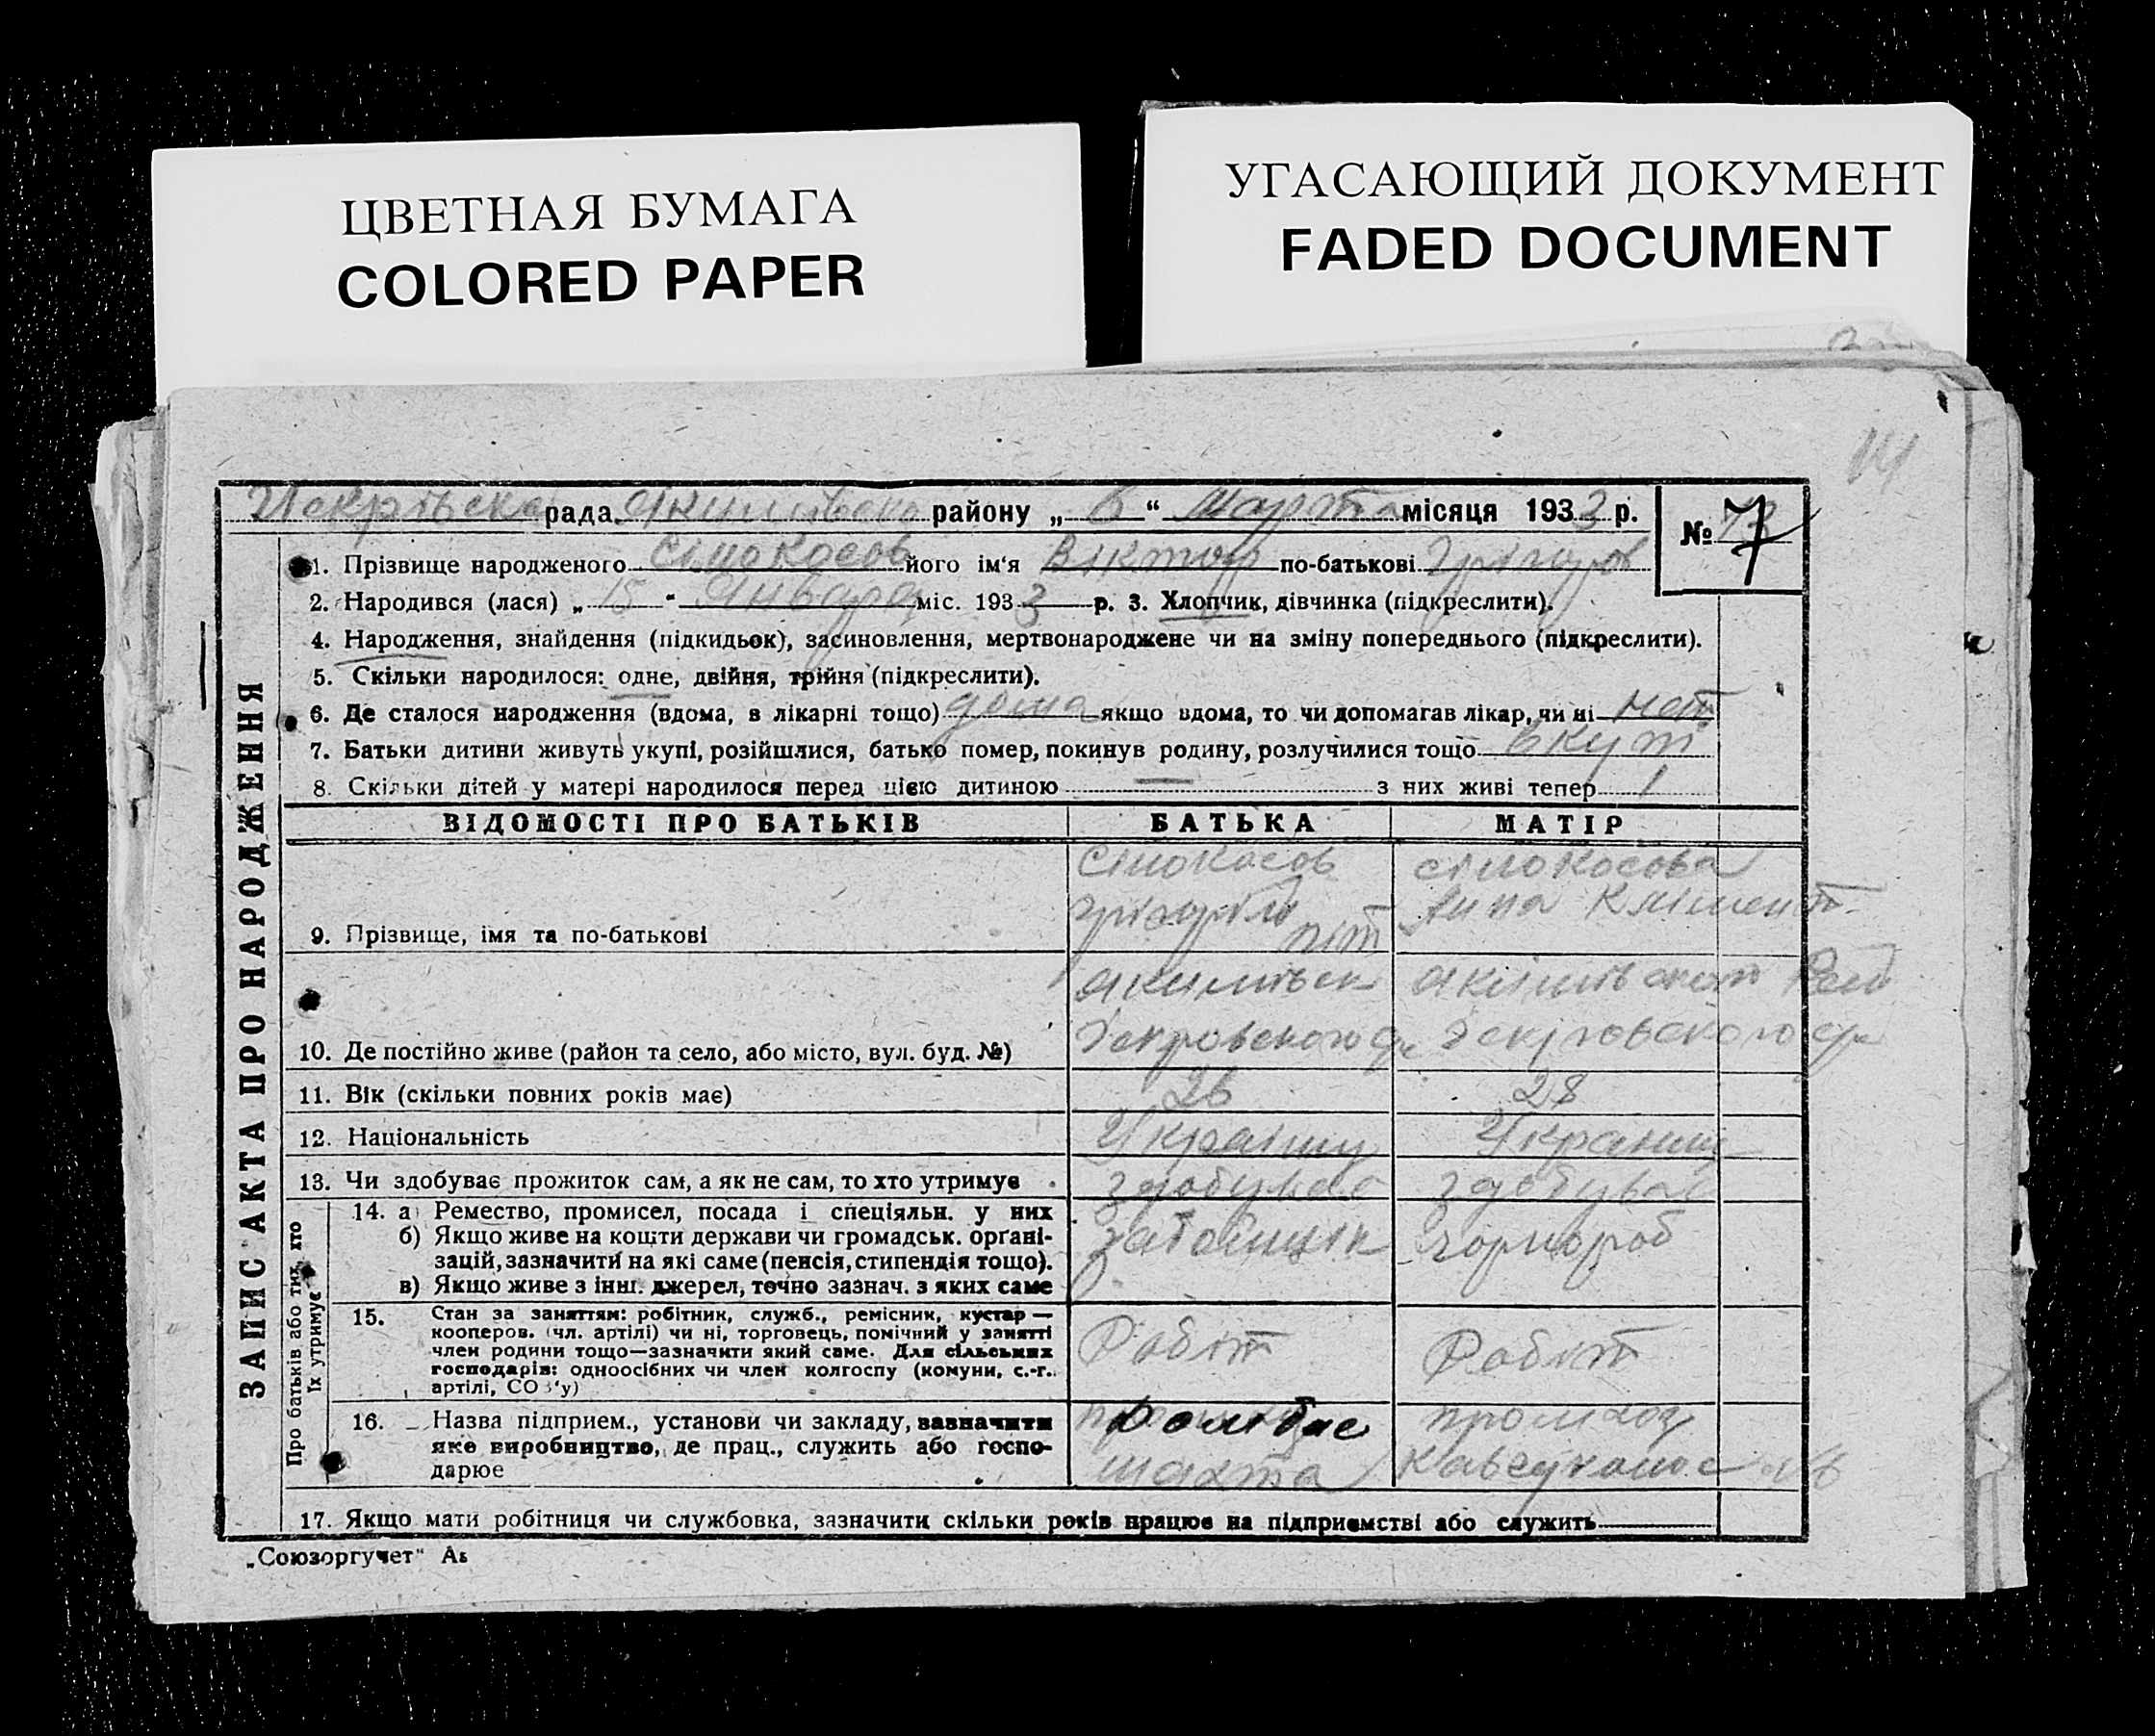 ЦВЕТНАЯ БУМАГА
COLORED PAPER
УГАСАЮЩИЙ ДОКУМЕНТ
FADED DOCUMENT
рада Якимівсько району „ 6 “ Марта місяця 1933 р.
№ 7
1. Прізвище народженого Сінокосов його ім'я Віктор по-батькові Грігоров
2. Народився (лася) „ 15 “ Января міс. 1933 р. 3. Хлопчик, дівчинка (підкреслити).
4. Народження, знайдення (підкидьок), засиновлення, мертвонароджене чи на зміну попереднього (підкреслити).
5. Скільки народилося: одне, двійня, трійня (підкреслити).
6. Де сталося народження (вдома, в лікарні тощо) дома якщо вдома, то чи допомагав лікар, чи ні
7. Батьки дитини живуть укупі, розійшлися, батько помер, покинув родину, розлучилися тощо вкупі
8. Скільки дітей у матері народилося перед цією дитиною — з них живі тепер 1
ЗАПИС АКТА ПРО НАРОДЖЕННЯ
ВІДОМОСТІ ПРО БАТЬКІВ БАТЬКА МАТІР
Сінокосов сінокосова
Грігорій Анна Клімент.
9. Прізвище, імя та по-батькові
10. Де постійно живе (район та село, або місто, вул. буд. №)
11. Вік (скільки повних років має) 26 28
12. Національність
13. Чи здобуває прожиток сам, а як не сам, то хто утримує здобуває здобуває
Про батьків або тих, хто їх утримує
14. а) Ремество, промисел, посада і спеціяльн. у них
б) Якщо живе на кошти держави чи громадськ. орґані-
зацій, зазначити на які саме (пенсія, стипендія тощо).
в) Якщо живе з інш. джерел, точно зазнач. з яких саме
забойщік чорнороб
15. Стан за заняттям: робітник, служб., ремісник, кустар —
кооперов. (чл. артілі) чи ні, торговець, помічний у занятті
член родини тощо—зазначити який саме. Для сільських
господарів: одноосібних чи член колгоспу (комуни, с.-г.
артілі, СОЗ'у)
Робіт Робіт
16. Назва підприєм., установи чи закладу, зазначити
яке виробництво, де прац., служить або госпо-
дарюе
Донбас
шахта
17. Якщо мати робітниця чи службовка, зазначити скільки років працює на підприємстві або служить
„Союзоргучет"